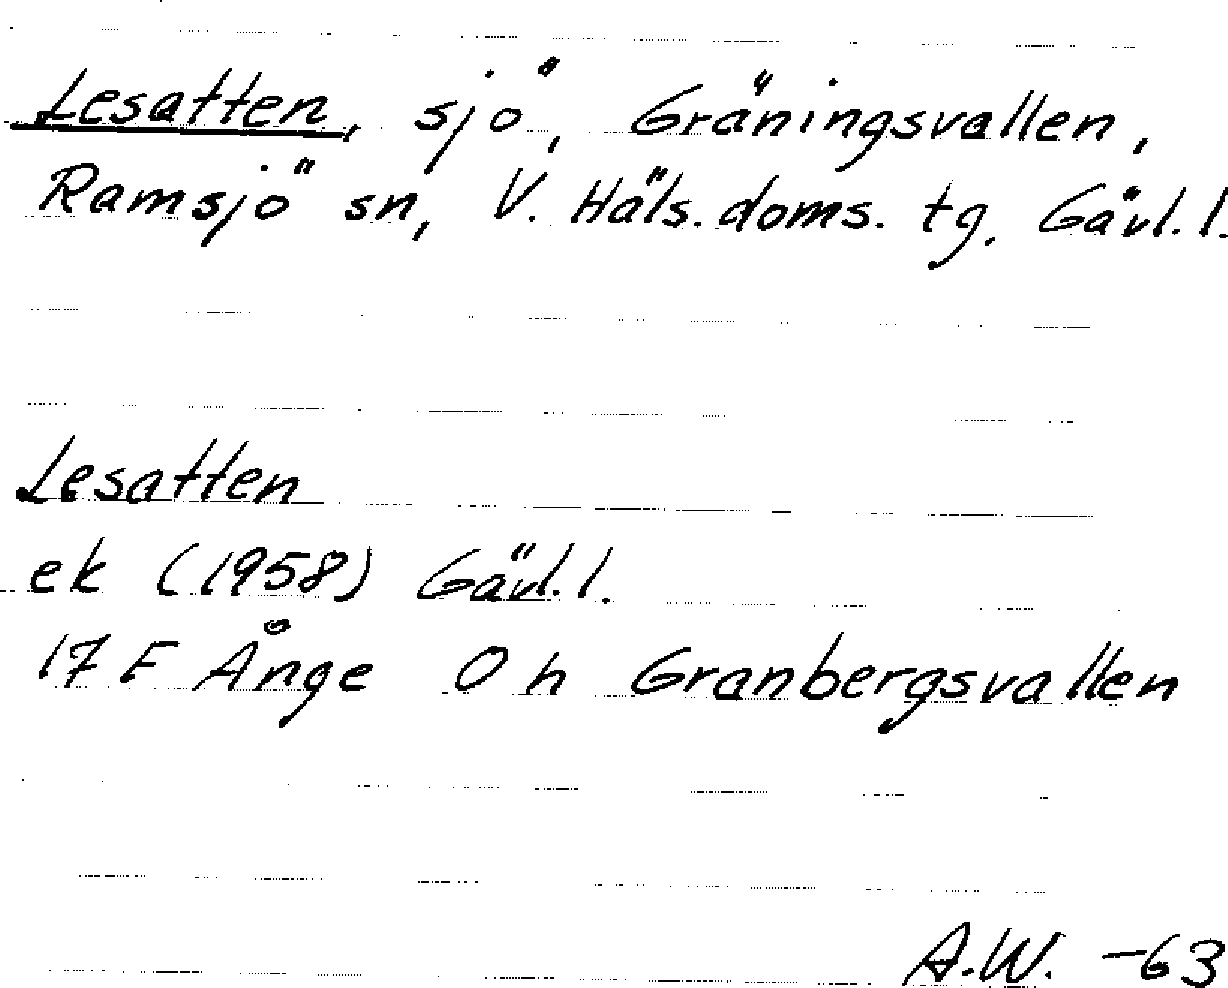 Lesatten, sjö, Gräningsvallen,
Ramsjö sn, V. Häls. doms. tg. Gävl. l.
Lesatten
ek (1958) Gävl. l.
17 F Ånge 0 h Granbergsvallen
A.W. -63